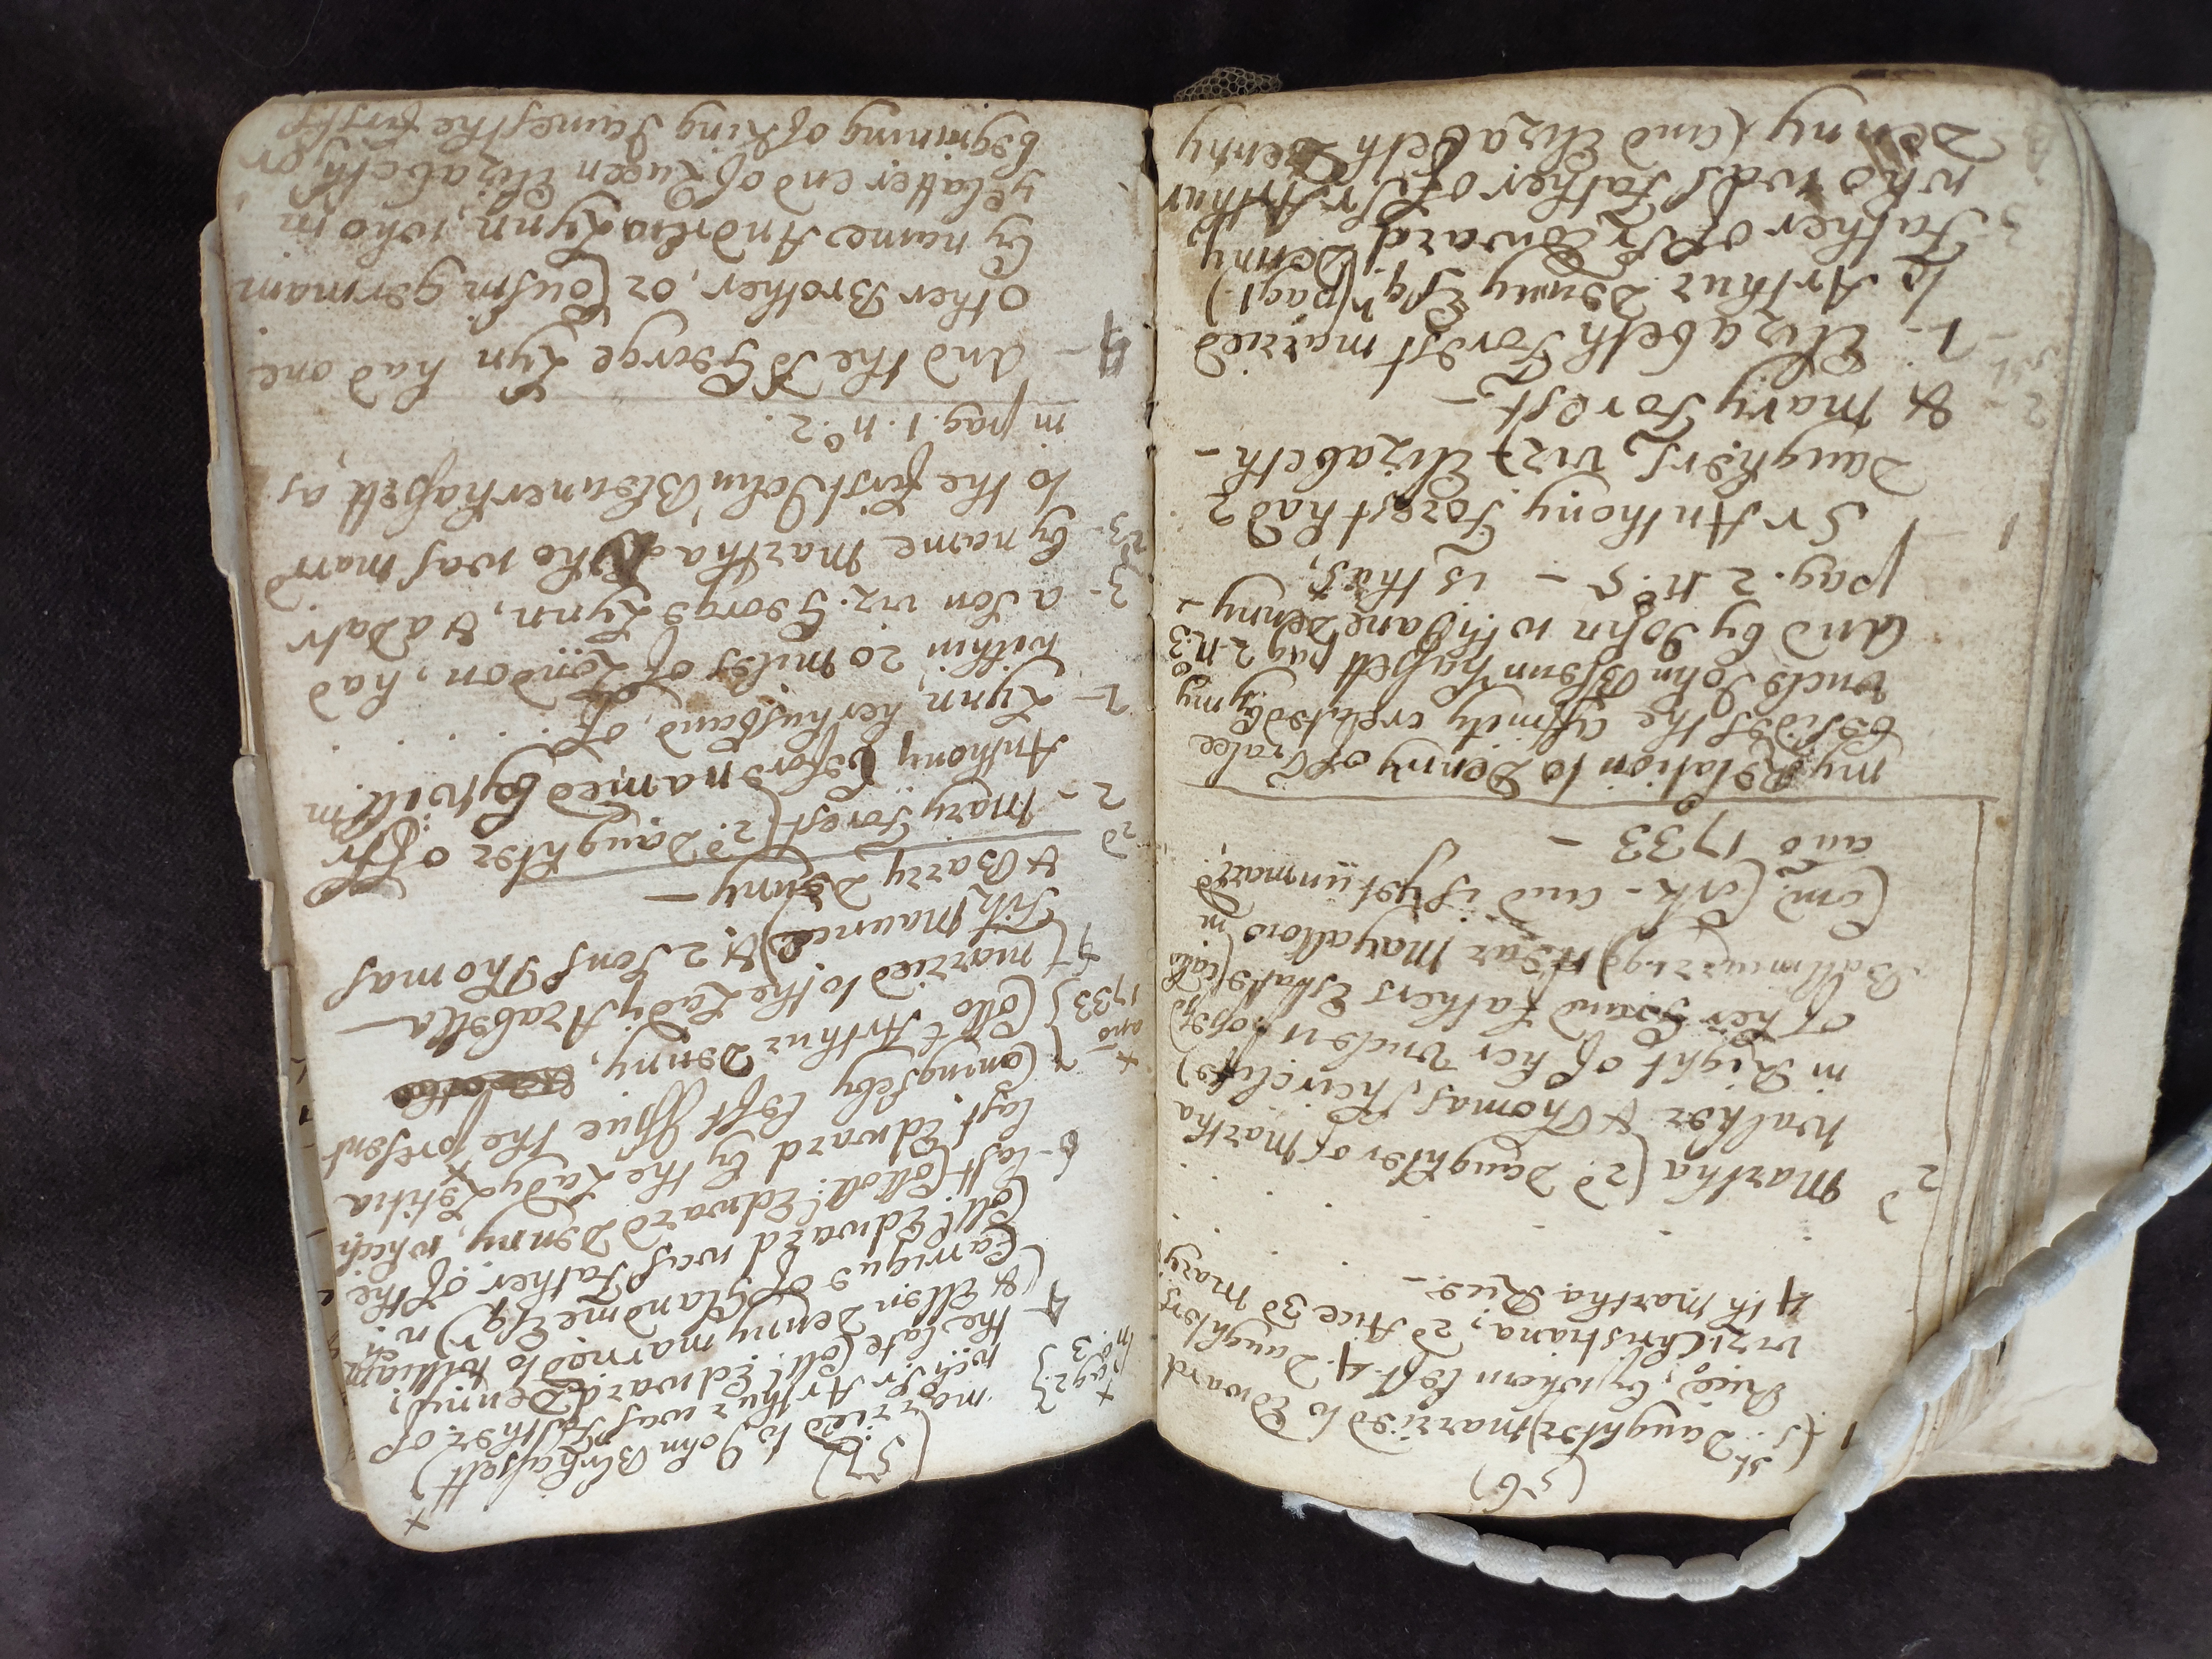 (56)
1 (1st. Daughter) married to Edward
Rice, by whom left 4. Daughters
vizt. Christiana, 2d Alice 3d Mary
4th Martha Rice. -
2d Martha (2d. Daughter of Martha
Walker & Thomas, heir
in Right of her Uncle
of her Grand Fathers Estate
Ballimurrigo) near Mayallow in
Com.) Cork - and is yet unmarrd.
ano 1733 -
my Relation to Denny of Tralee
besides the affinity created by my
uncle John Blennrhassett pag 2 no. 3
And by John wth. Jane Denny -
pag. 2 no. 5 - is thus,
1 Sr Anthony Forest had 2
Daughters, vizt. Elizabeth -
& Mary Forest, -
1 - Elizabeth Forest married
to Arthur Denny Esqr. (pag 1.)
2 Father of Sr. Edward Denny
3 who was father of Sr. Arthur
Denny (and Elizabeth Denny
(57)
married to John Blrhassett) +
+ pag 2 no. 3 wch. Sr Arthur was Father of
the late Coll. Edward Denny,
4 & Ellen Denny married to William
Carrigue of Glandine Esqr) wch.
Coll. Edward was Father of the
last Coll. Edward Denny, which
6 - last Edward by the Lady Letitia
Coningseby left Issue the present
7 Coll. Arthur Denny,
+ ano 1733 (married to the Lady Arabella -
Fitz Maurice) & 2 Sons Thomas
& Barry Denny -
2d 2 - Mary Forest (2d. Daughter of Sr
Anthony before named by Will.m
2 - Lynn, her husband, of . . . .
within 20 miles of London, had
3 - a Son viz. George Lynn, & a Datr
by name Martha who was marrd
to the first John Blennerhassett as,
in pag. 1. no. 2.
4 - And the sd George Lyn had one
other Brother, or Cousin german
by name Andrew Lynn, who in
ye latter end of Queen Elizabeth, or
begining of King James the first